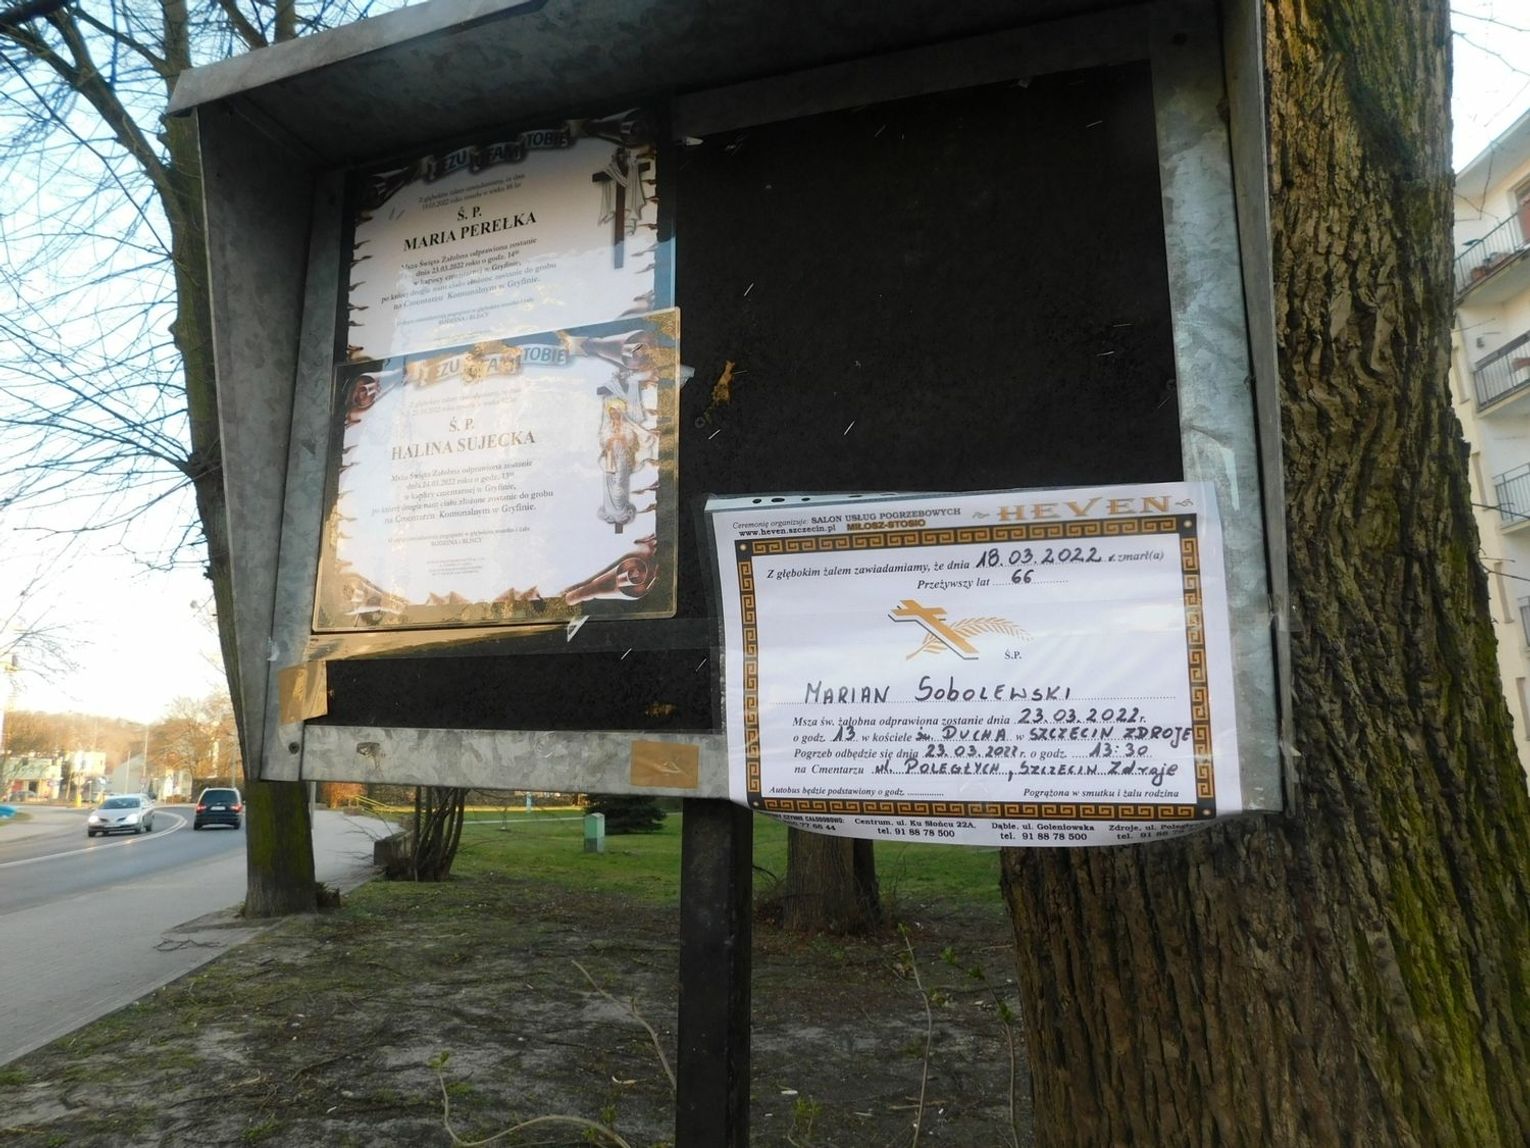 JEZU UFAM TOBIE
Z głębokim żalem zawiadamiamy, że dnia
Ś. P.
MARIA PEREŁKA
Msza Święta Żałobna odprawiona zostanie
dnia 23.03.2022 roku o godz. 14⁰⁰
w kaplicy cmentarnej w Gryfinie,
po której drogie nam ciało złożone zostanie do grobu
na Cmentarzu Komunalnym w Gryfinie.
RODZINA i BLISCY
JEZU UFAM TOBIE
Ś. P.
HALINA SUJECKA
Msza Święta Żałobna odprawiona zostanie
w kaplicy cmentarnej w Gryfinie,
po której drogie nam ciało złożone zostanie do grobu
na Cmentarzu Komunalnym w Gryfinie.
RODZINA i BLISCY
Ceremonię organizuje: SALON USŁUG POGRZEBOWYCH HEVEN
www.heven.szczecin.pl MIŁOSZ-STOSIO
Z głębokim żalem zawiadamiamy, że dnia 18.03.2022 r. zmarł(a)
Przeżywszy lat 66
Ś.P.
MARIAN SOBOLEWSKI
Msza św. żałobna odprawiona zostanie dnia 23.03.2022 r.
o godz. 13 w kościele Św. DUCHA w SZCZECIN ZDROJE
Pogrzeb odbędzie się dnia 23.03.2022 r. o godz. 13:30
na Cmentarzu ul. POLEGŁYCH, SZCZECIN Zdroje
Autobus będzie podstawiony o godz. Pogrążona w smutku i żalu rodzina
CZYNNE CAŁODOBOWO: Centrum, ul. Ku Słońcu 22A, Dąbie, ul. Goleniowska Zdroje, ul.
tel. 91 88 78 500 tel. 91 88 78 500 tel. 91